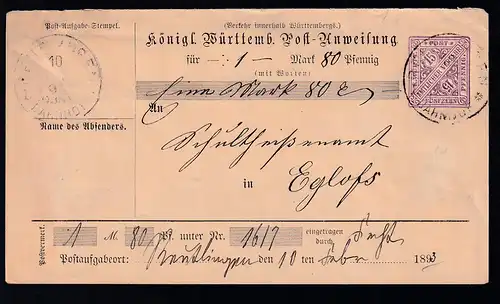 (Verkehr innerhalb Württembergs.)
Post-Aufgabe-Stempel.
Königl. Württemb. Post-Anweisung
für -:1- Mark 80 Pfennig
(mit Worten)
Eine Mark 80 ₰
An
Schultheißenamt
in Eglofs
10
BAHNHOF
Name des Absenders.
POST
15
FÜNFZEHN
PFENNIG
BAHNHOF
Postvermerk.
1 M. 80 Pf. unter Nr. 1617 eingetragen durch
Postaufgabeort: Reutlingen den 10 ten Febr 1893